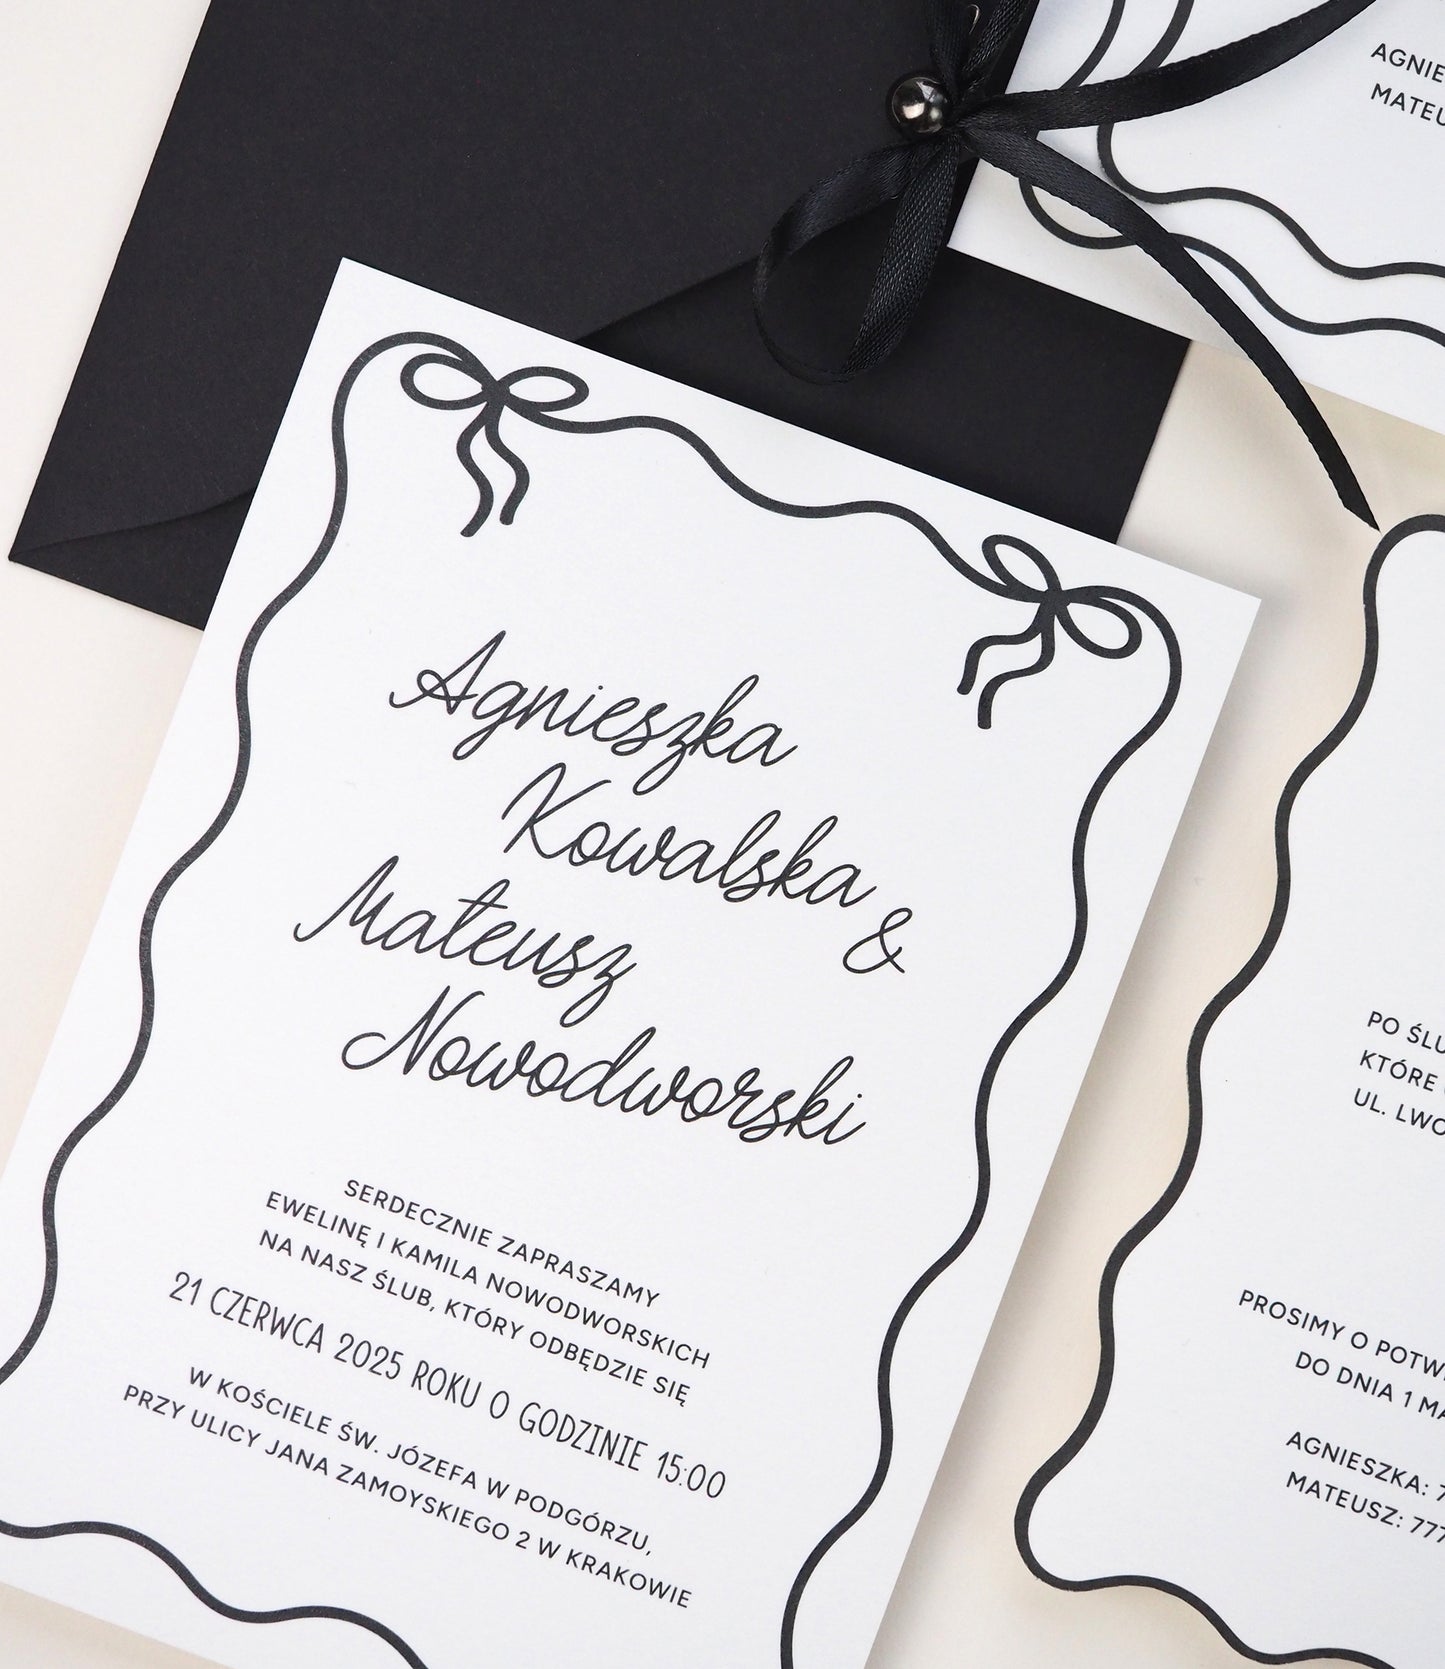 Agnieszka
Kowalska
&
Mateusz
Nowodworski
SERDECZNIE ZAPRASZAMY
EWELINĘ I KAMILA NOWODWORSKICH
NA NASZ ŚLUB, KTÓRY ODBĘDZIE SIĘ
21 CZERWCA 2025 ROKU O GODZINIE 15:00
W KOŚCIELE ŚW. JÓZEFA W PODGÓRZU,
PRZY ULICY JANA ZAMOYSKIEGO 2 W KRAKOWIE
PO
KTÓRE
UL.
PROSIMY O
DO DNIA 1
AGNIESZKA:
MATEUSZ: